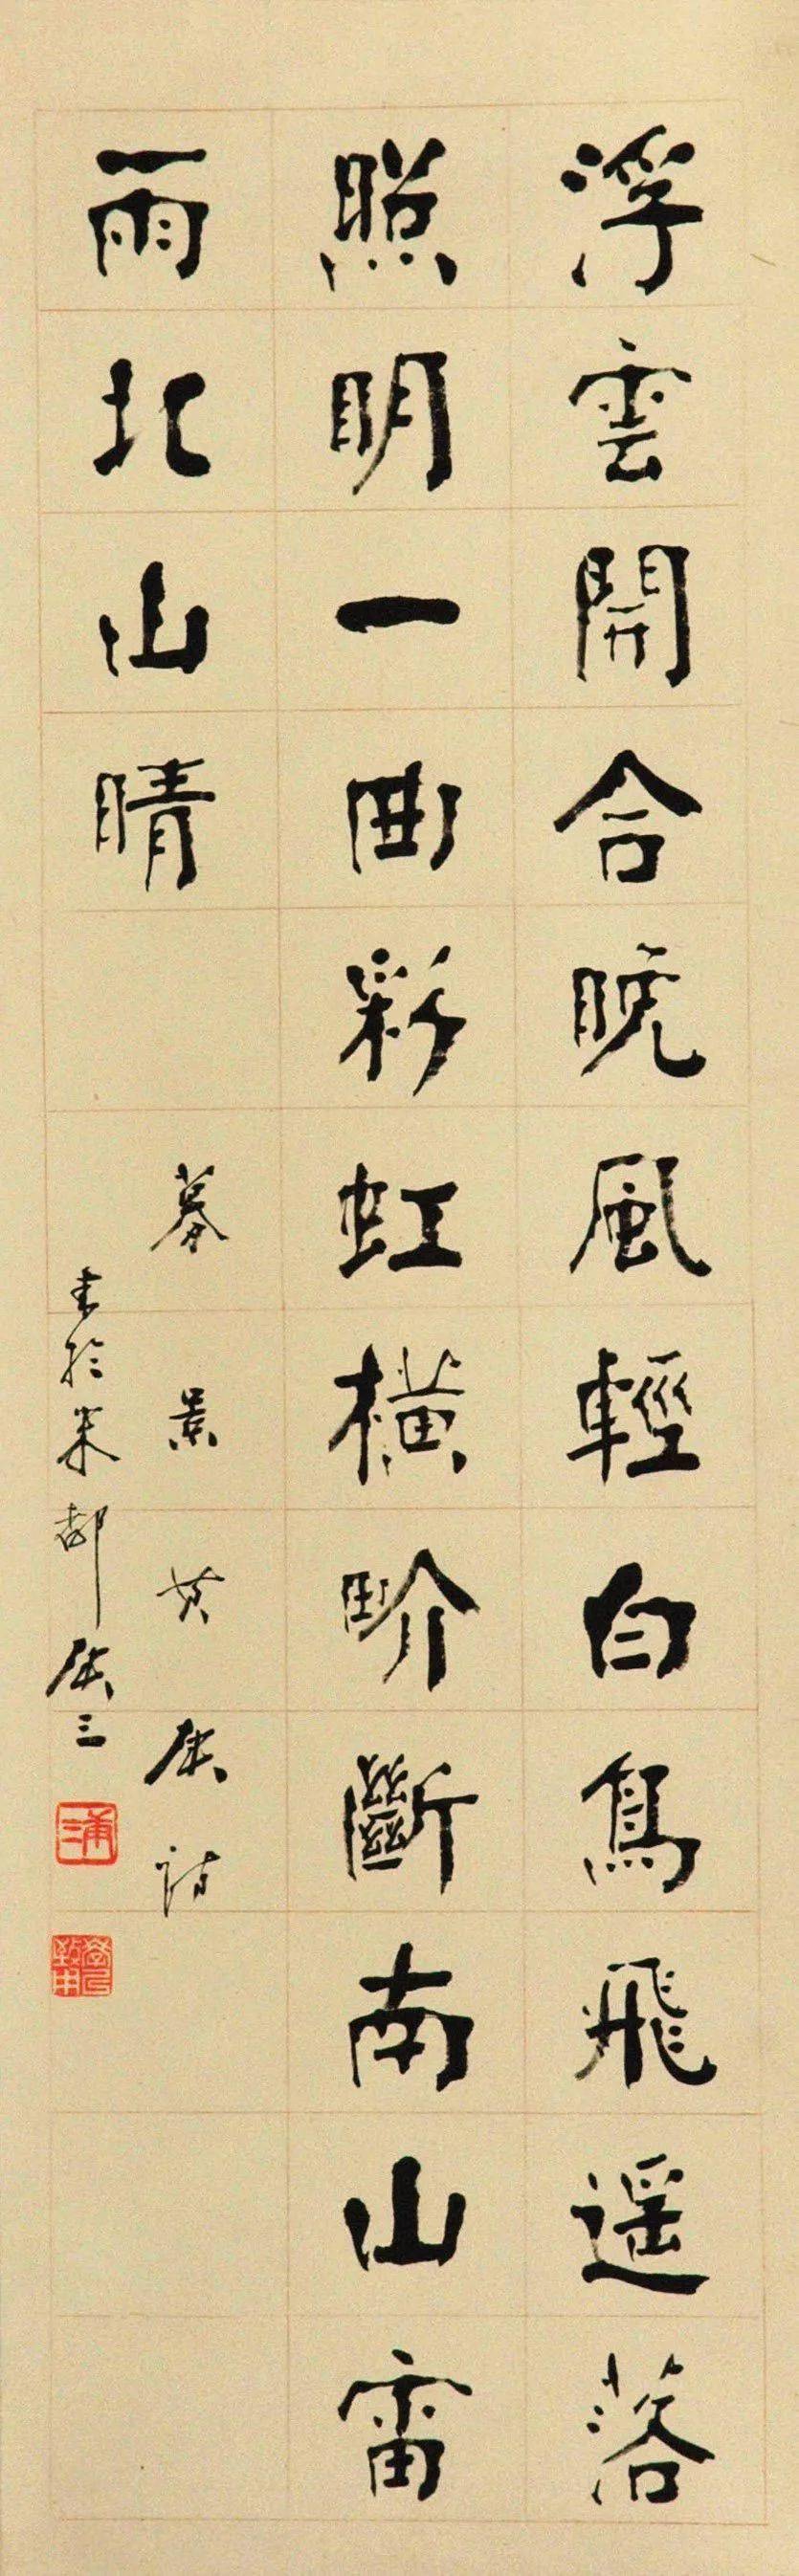 浮雲開合晚風輕白鳥飛遥落
照明一曲彩虹橫畍斷南山雷
雨北山晴
暮景黃庚詩
書於米都庚三